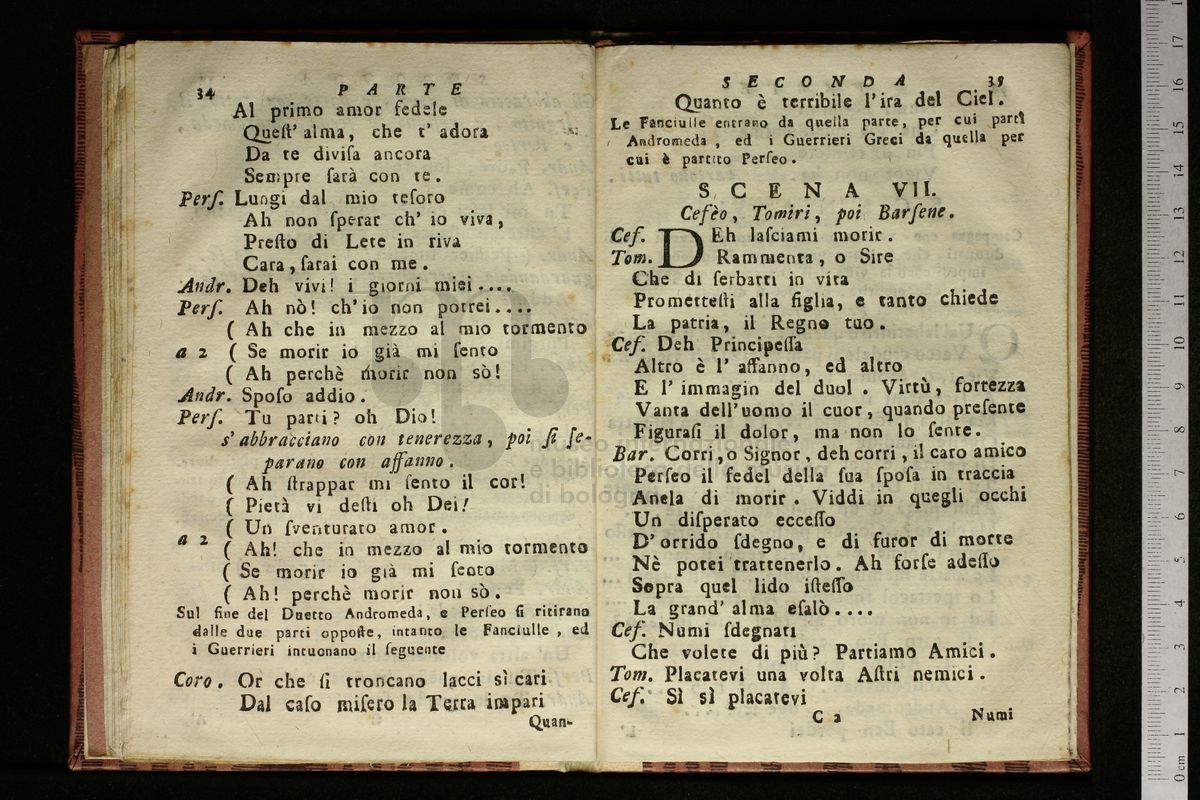 34 PARTE
Al primo amor fedele
Queſt' alma, che t' adora
Da te diviſa ancora
Sempre ſarà con te.
Perſ. Lungi dal mio teſoro
Ah non ſperar ch' io viva,
Preſto di Lete in riva
Cara, ſarai con me.
Andr. Deh vivi! i giorni miei....
Perſ. Ah nò! ch'io non potrei....
( Ah che in mezzo al mio tormento
a 2 ( Se morir io già mi ſento
( Ah perchè morir non sò!
Andr. Spoſo addio.
Perſ. Tu parti? oh Dio!
s' abbracciano con tenerezza, poi ſi ſe-
parano con affanno.
( Ah ſtrappar mi ſento il cor!
( Pietà vi deſti oh Dei!
( Un ſventurato amor.
a 2
( Ah! che in mezzo al mio tormento
( Se morir io già mi ſento
( Ah! perchè morir non sò.
Sul fine del Duetto Andromeda, e Perſeo ſi ritirano
dalle due parti oppoſte, intanto le Fanciulle, ed
i Guerrieri intuonano il ſeguente
Coro. Or che ſi troncano lacci sì cari
Dal caſo miſero la Terra impari
Quan-
SECONDA 35
Quanto è terribile l'ira del Ciel.
Le Fanciulle entrano da quella parte, per cui partì
Andromeda, ed i Guerrieri Greci da quella per
cui è partito Perſeo.
SCENA VII.
Cefèo, Tomiri, poi Barſene.
Cef. DEh laſciami morir.
Tom. Rammenta, o Sire
Che di ſerbarti in vita
Prometteſti alla figlia, e tanto chiede
La patria, il Regno tuo.
Cef. Deh Principeſſa
Altro è l' affanno, ed altro
E l' immagin del duol. Virtù, fortezza
Vanta dell'uomo il cuor, quando preſente
Figuraſi il dolor, ma non lo ſente.
Bar. Corri, o Signor, deh corri, il caro amico
Perſeo il fedel della ſua ſpoſa in traccia
Anela di morir. Viddi in quegli occhi
Un diſperato ecceſſo
D'orrido ſdegno, e di furor di morte
Nè potei trattenerlo. Ah forſe adeſſo
Sopra quel lido iſteſſo
La grand' alma eſalò....
Cef. Numi ſdegnati
Che volete di più? Partiamo Amici.
Tom. Placatevi una volta Aſtri nemici.
Cef. Sì sì placatevi
C 2 Numi